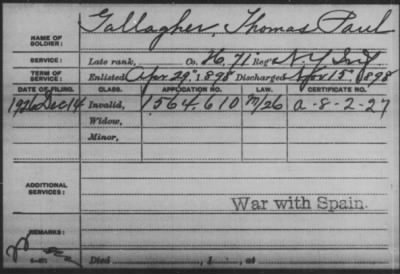 NAME OF SOLDIER: Gallagher, Thomas Paul
SERVICE: Late rank, Co. H, 71" Reg't N.Y. Inf
TERM OF SERVICE: Enlisted Apr. 29", 1898 Discharged Nov 15", 1898
DATE OF FILING. CLASS. APPLICATION NO. LAW. CERTIFICATE NO.
1926 Dec 14 Invalid, 1564,610 M/26 A-8-2-27
Widow,
Minor,
ADDITIONAL SERVICES:
War with Spain.
REMARKS:
Died , 1 , at